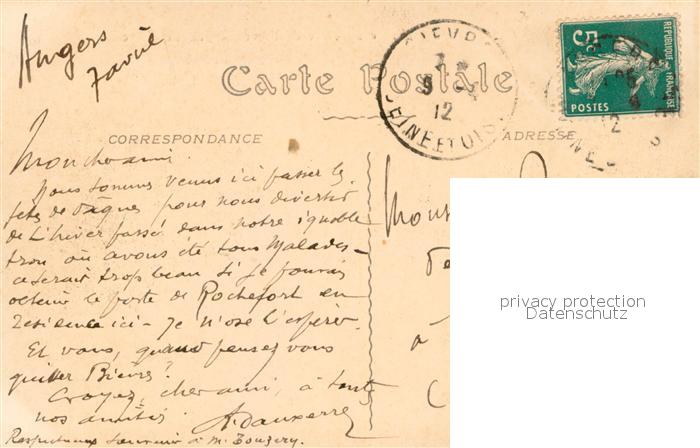 Angers
7 avril
Carte Postale
5c
REPUBLIQUE FRANÇAISE
POSTES
BIEVRES
9
12
SEINE ET OISE
CORRESPONDANCE
ADRESSE
Mon cher ami.
Nous sommes venus ici passer les
fêtes de Pâques pour nous divertir
de l'hiver passé dans notre ignoble
trou où avons été tous malades -
ce serait trop beau si je pouvais
obtenir le poste de Rochefort en
résidence ici - Je n'ose l'espérer.
Et vous, quand pensez vous
quitter Bièvres?
Croyez, cher ami, à toutes
nos amitiés
A. Dauxerre
Respectueux souvenir à M.
Mons
à
privacy protection
Datenschutz